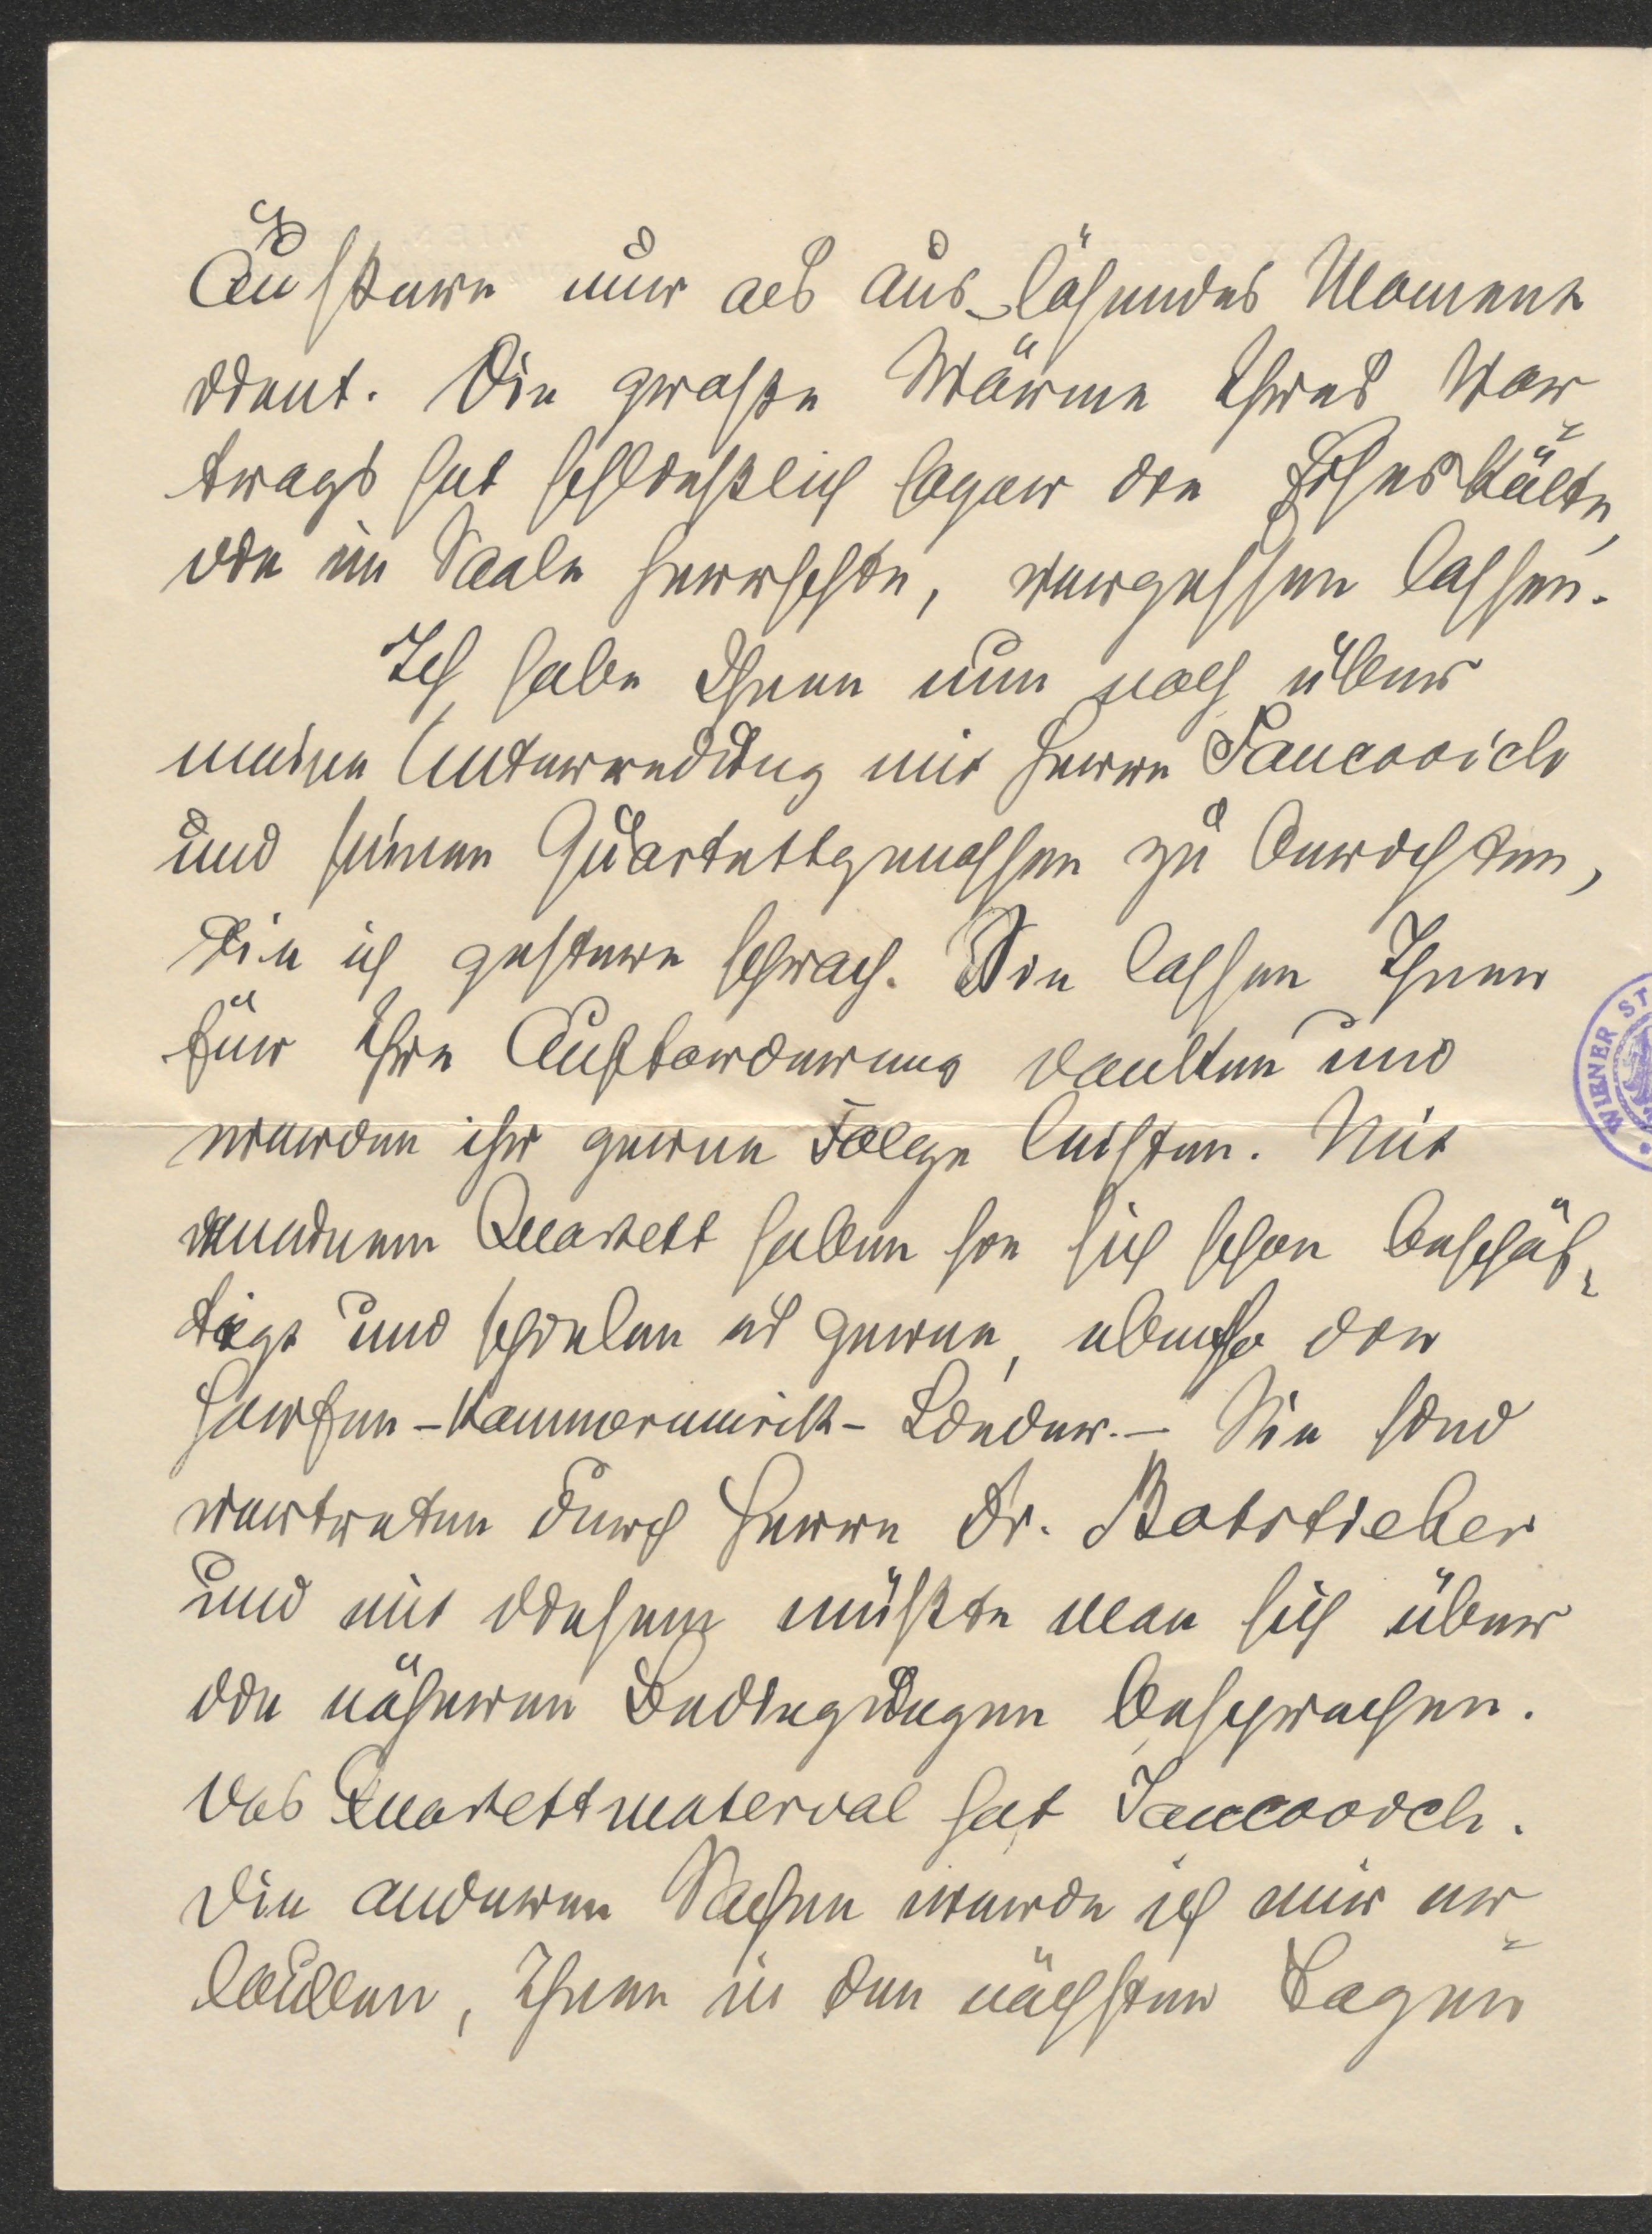 Äußere nur als auslösendes Moment
dient. Die große Wärme Ihres Vor-
trags hat schließlich sogar die Eiseskälte,
die im Saale herrschte, vergessen lassen.
Ich habe Ihnen nun noch über
meine Unterredung mit Herrn Jancovich
und seinen Quartettgenossen zu berichten,
die ich gestern sprach. Sie lassen Ihnen
für Ihre Aufforderung danken und
werden ihr gerne Folge leisten. Mit
meinem Quartett haben sie sich schon beschäf-
tigt und spielen es gerne, ebenso die
Harfen-Kammermusik-Lieder. – Sie sind
vertreten durch Herrn Dr. Botstieber
und mit diesem müßte man sich über
die näheren Bedingungen besprechen.
Das Quartettmaterial hat Jancovich.
Die anderen Sachen werde ich mir er-
lauben, Ihnen in den nächsten Tagen
WIENER ST